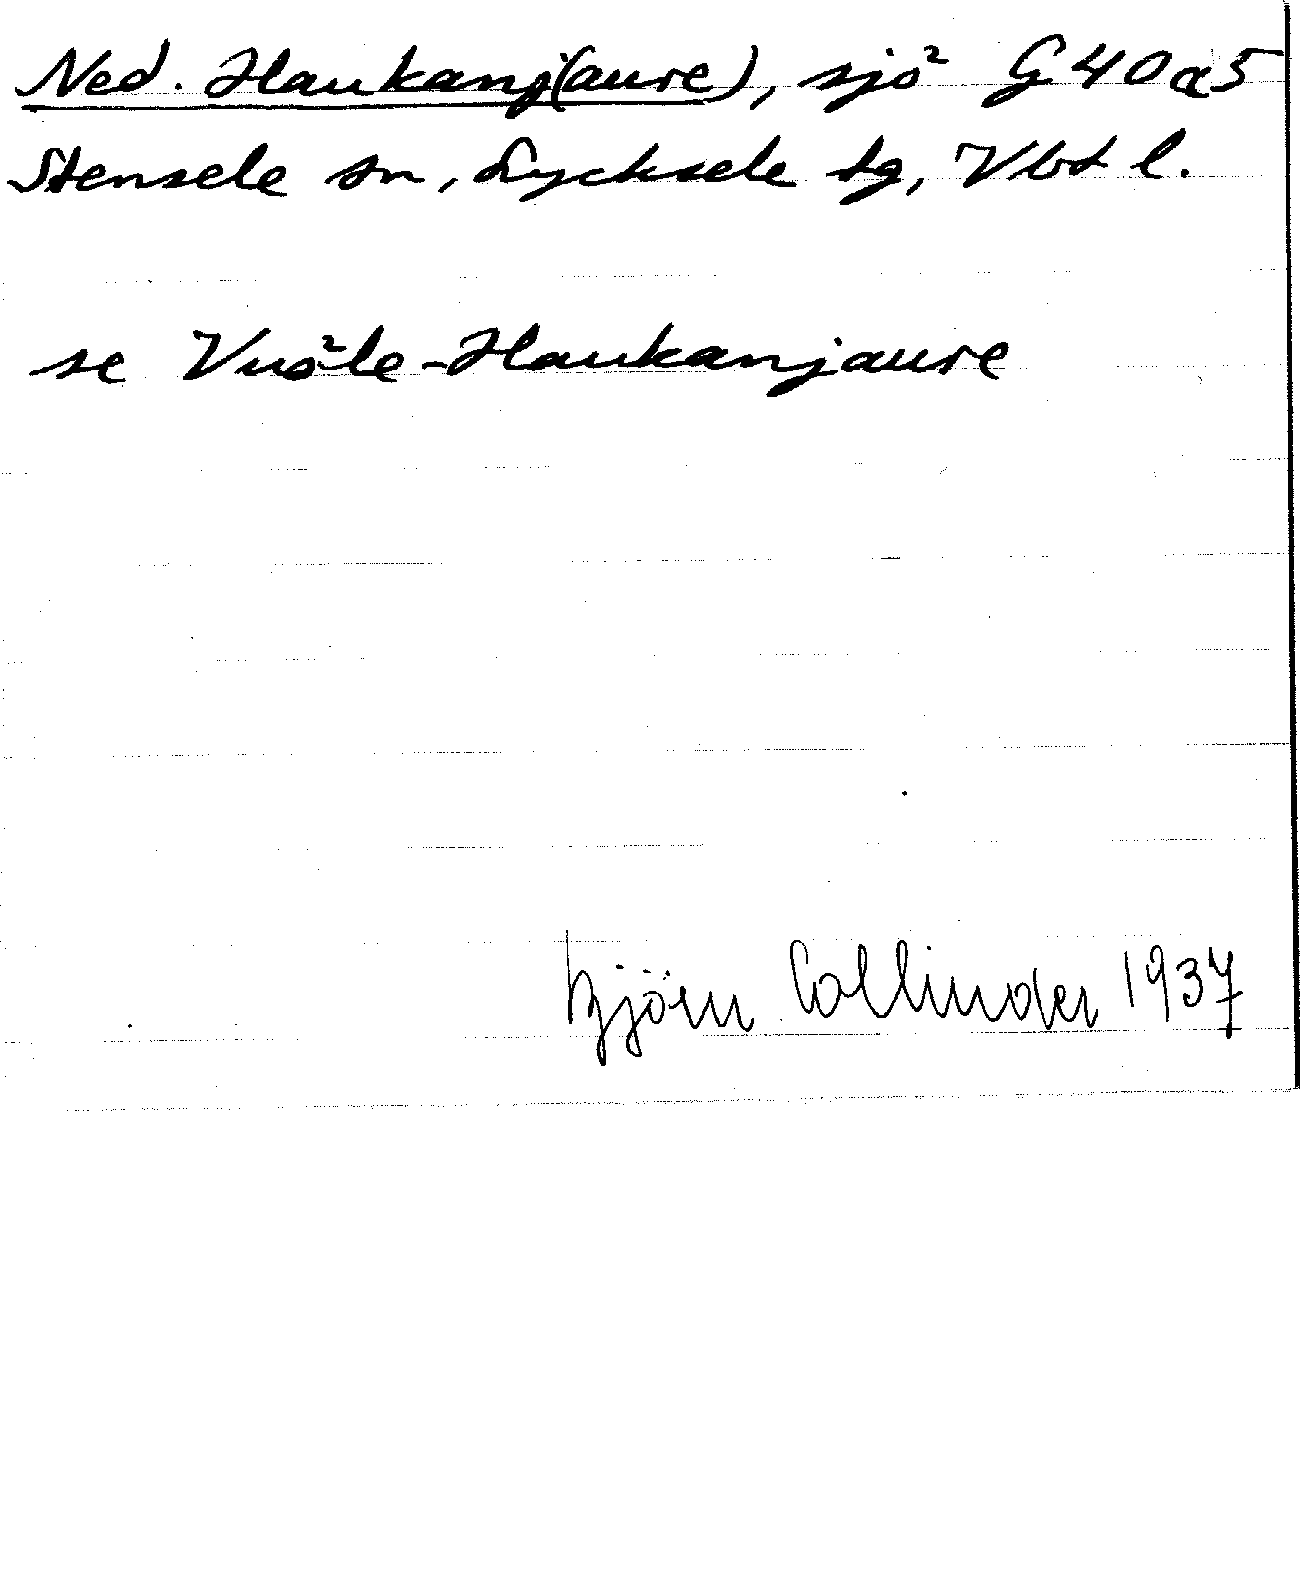 Ned. Haukanj(aure), sjö G40a5
Stensele sn, Lycksele tg, Vbt l.
se Vuöle-Haukanjaure
Björn Collinder 1937